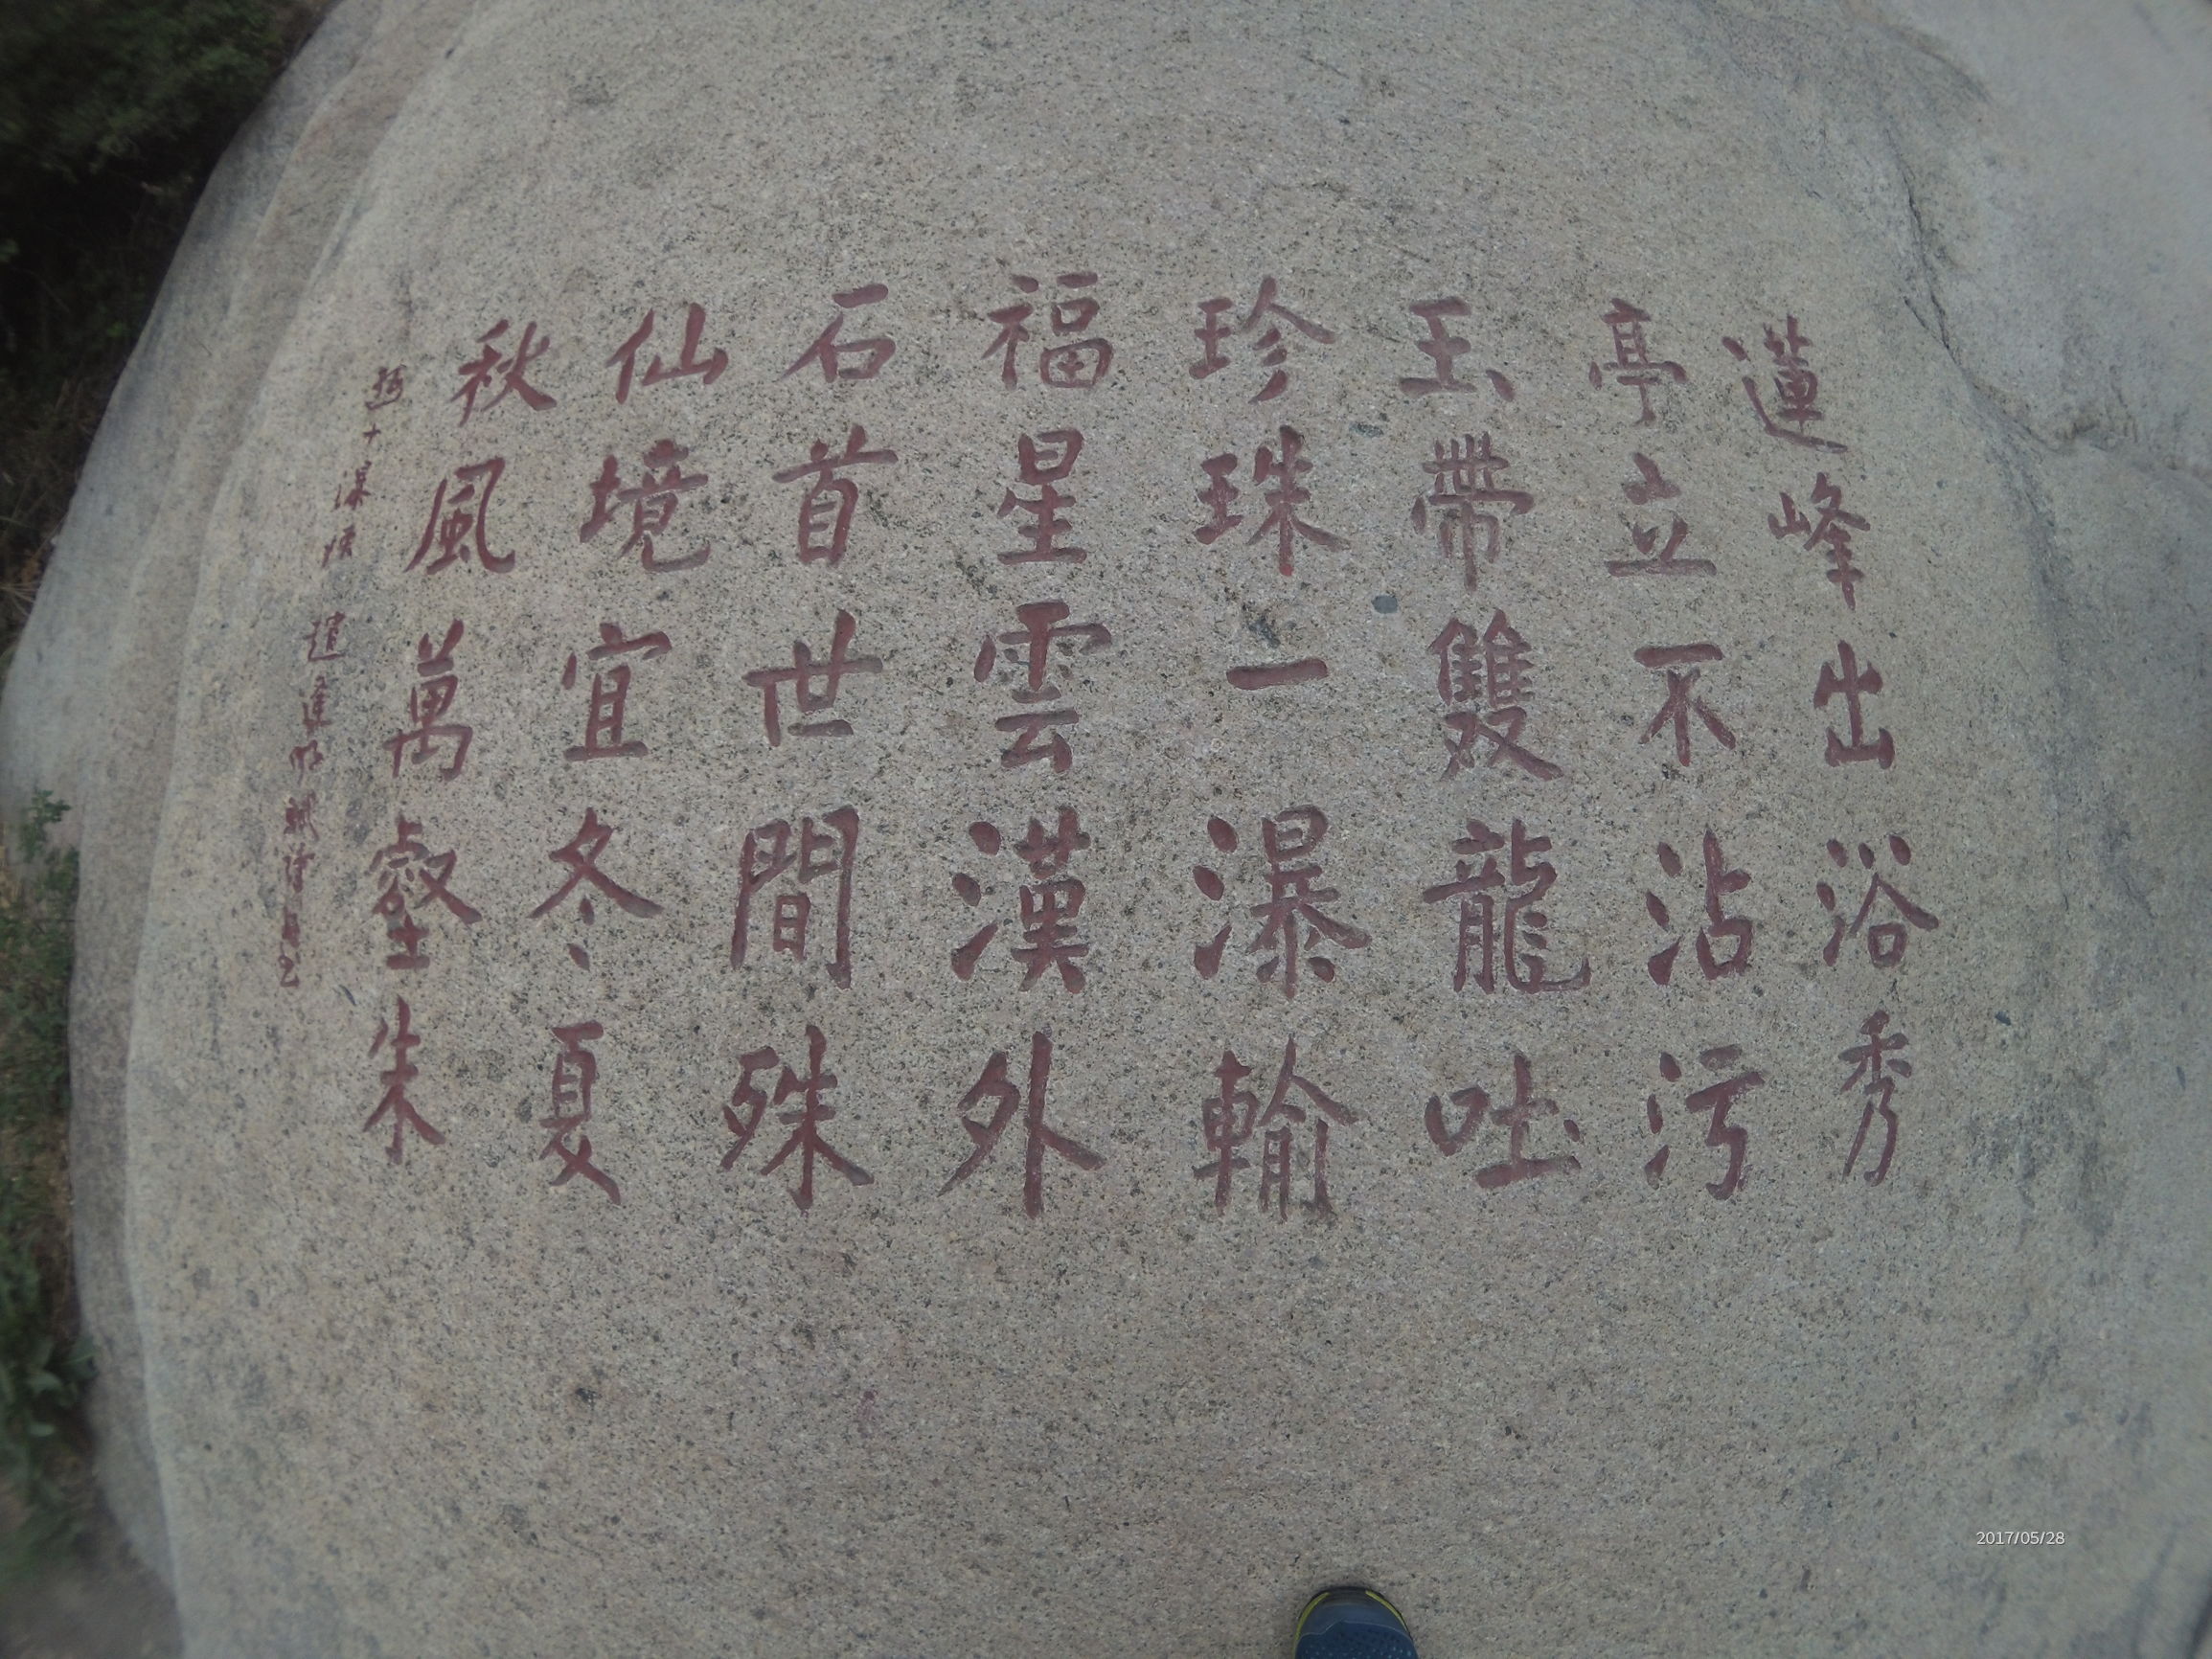 蓮峰出浴秀
亭立不沾污
玉帶雙龍吐
珍珠一瀑輸
福星雲漢外
石首世間殊
仙境宜冬夏
秋風萬壑朱
2017/05/28